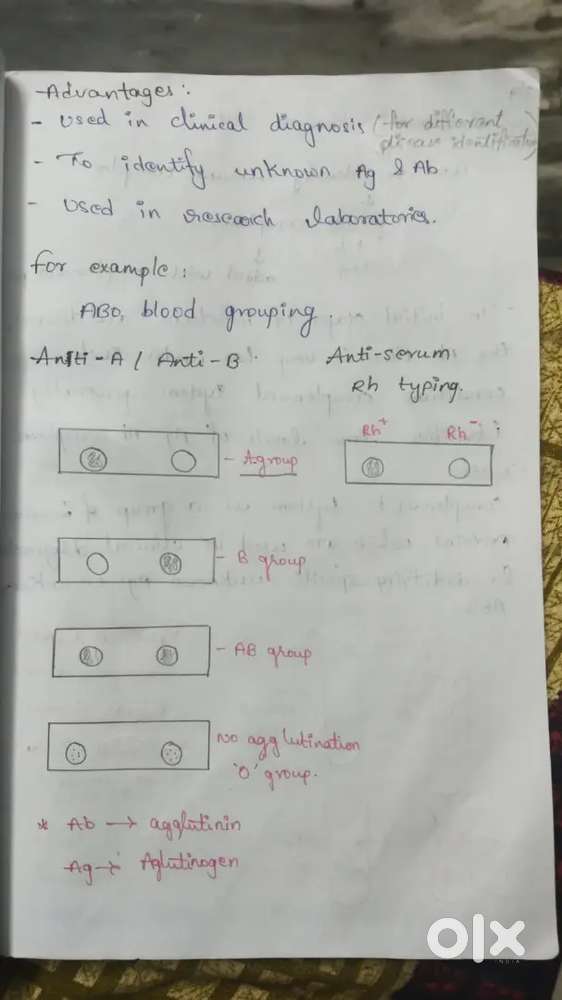 Advantages:
- Used in clinical diagnosis (for different
disease identification)
- To identify unknown Ag & Ab
- Used in research laboratories.
for example:
ABO, blood grouping.
Anti-A / Anti-B
Anti-serum
Rh typing.
Rh+ Rh-
- A group
- B group
- AB group
No agglutination
'O' group.
* Ab → agglutinin
Ag → Aglutinogen
olx
INDIA